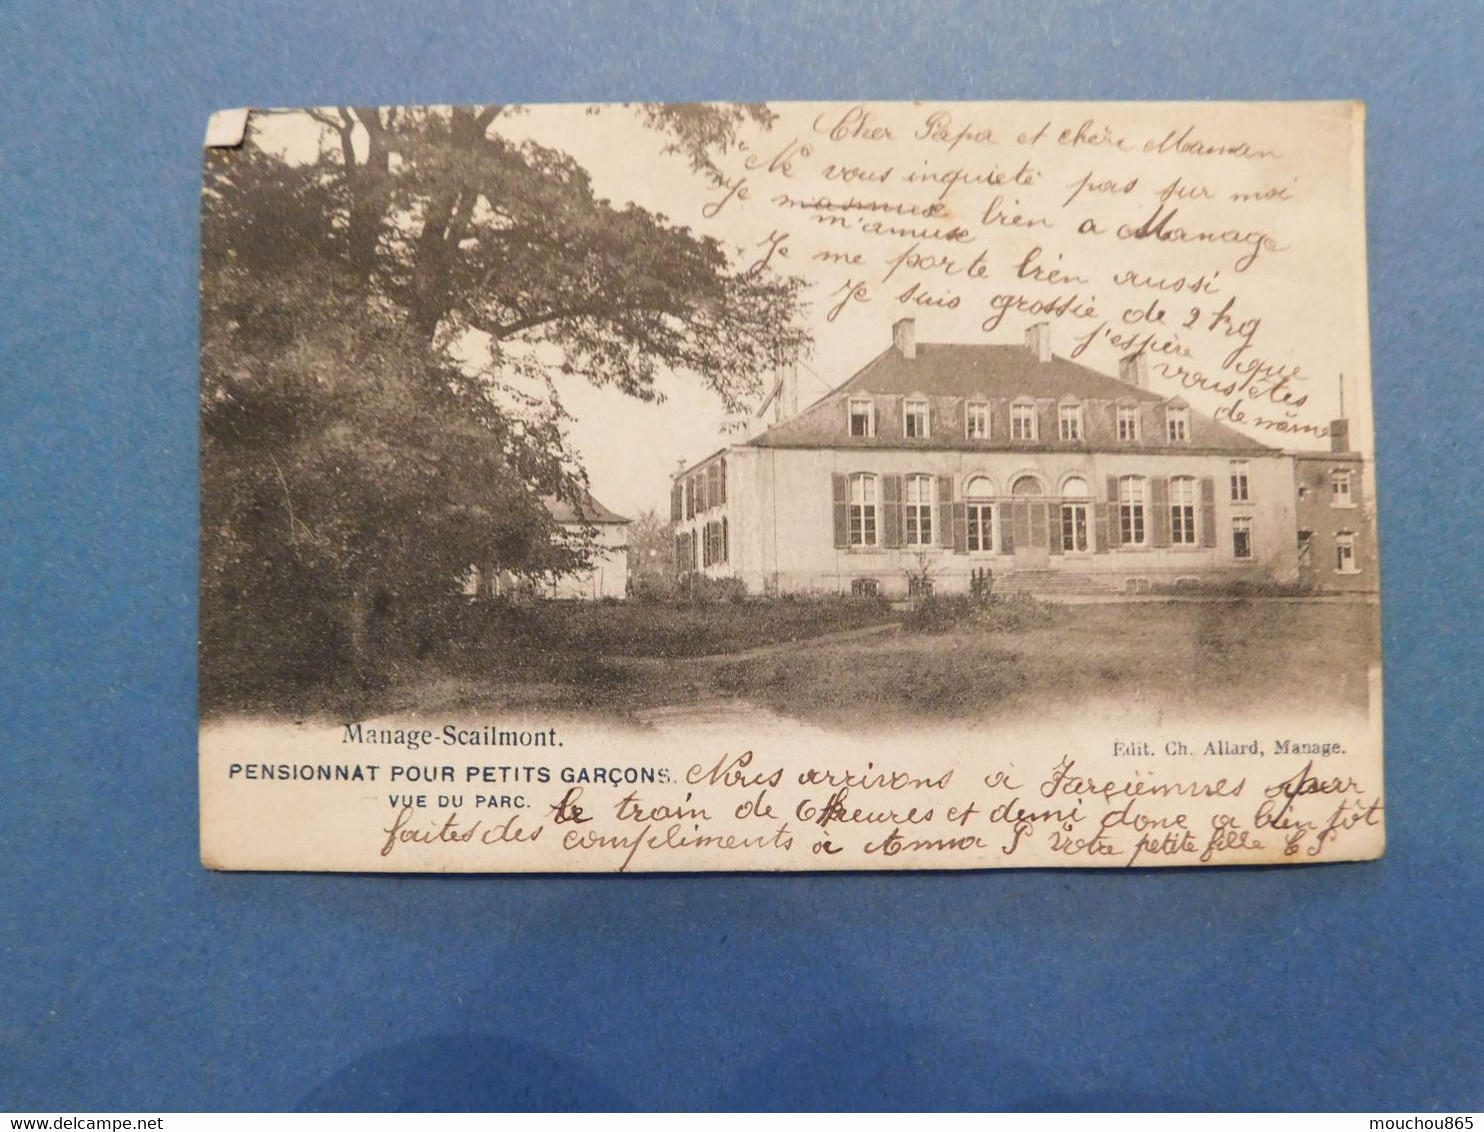 Cher Papa et chère Maman
Ne vous inquieté pas sur moi
Je bien a Manage
m'amuse
Je me porte bien aussi
Je suis grossie de 2 kg
j'espère que
vous êtes
de même
Manage-Scailmont.
Edit. Ch. Allard, Manage.
PENSIONNAT POUR PETITS GARÇONS.
VUE DU PARC.
Nous arrivons à Farciennes par
le train de 6 heures et demi donc a bien tôt
faites des compliments à Anna P Votre petite fille C P
mouchou865